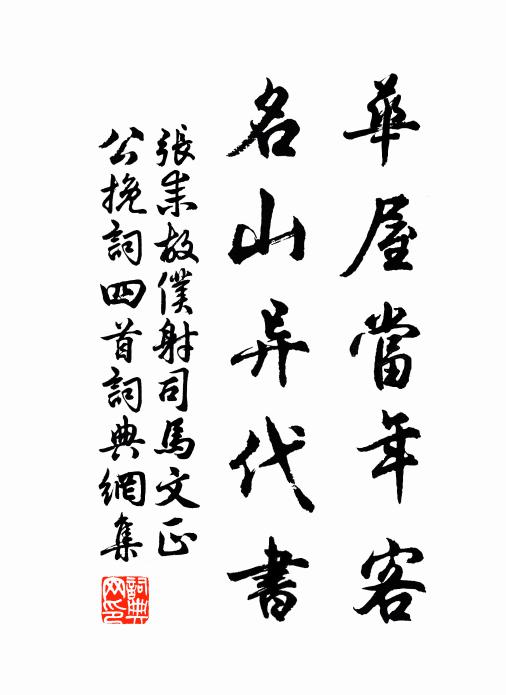 華屋當年客
名山异代書
張耒故僕射司馬文正
公挽詞四首詞典網集
詞典
网印